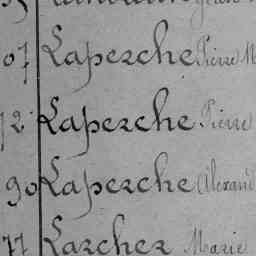 07 Laperche Pierre M
12 Laperche Pierre
90 Laperche Alexand
77 Larcher Marie